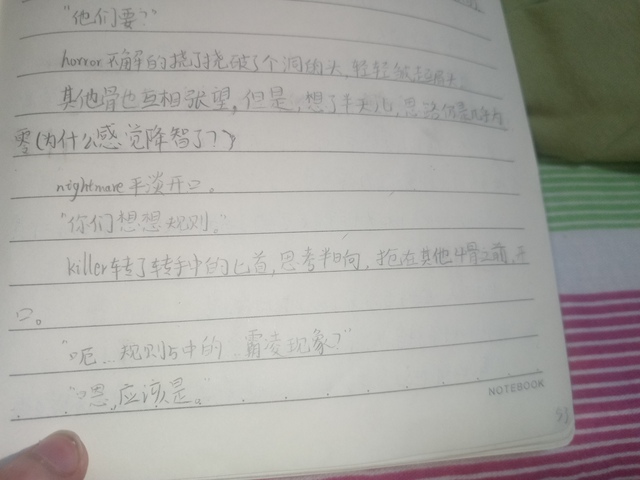 "他们要?"
horror不解的挠了挠破了个洞的头,轻轻皱起眉头。
其他骨也互相张望,但是,想了半天儿,思路仍是几乎为
零(为什么感觉降智了?)
nightmare平淡开口。
"你们想想规则。"
killer转了转手中的匕首,思考半晌,抢在其他4骨之前,开
口。
"呃...规则5中的...霸凌现象?"
"嗯,应该是。"
NOTEBOOK